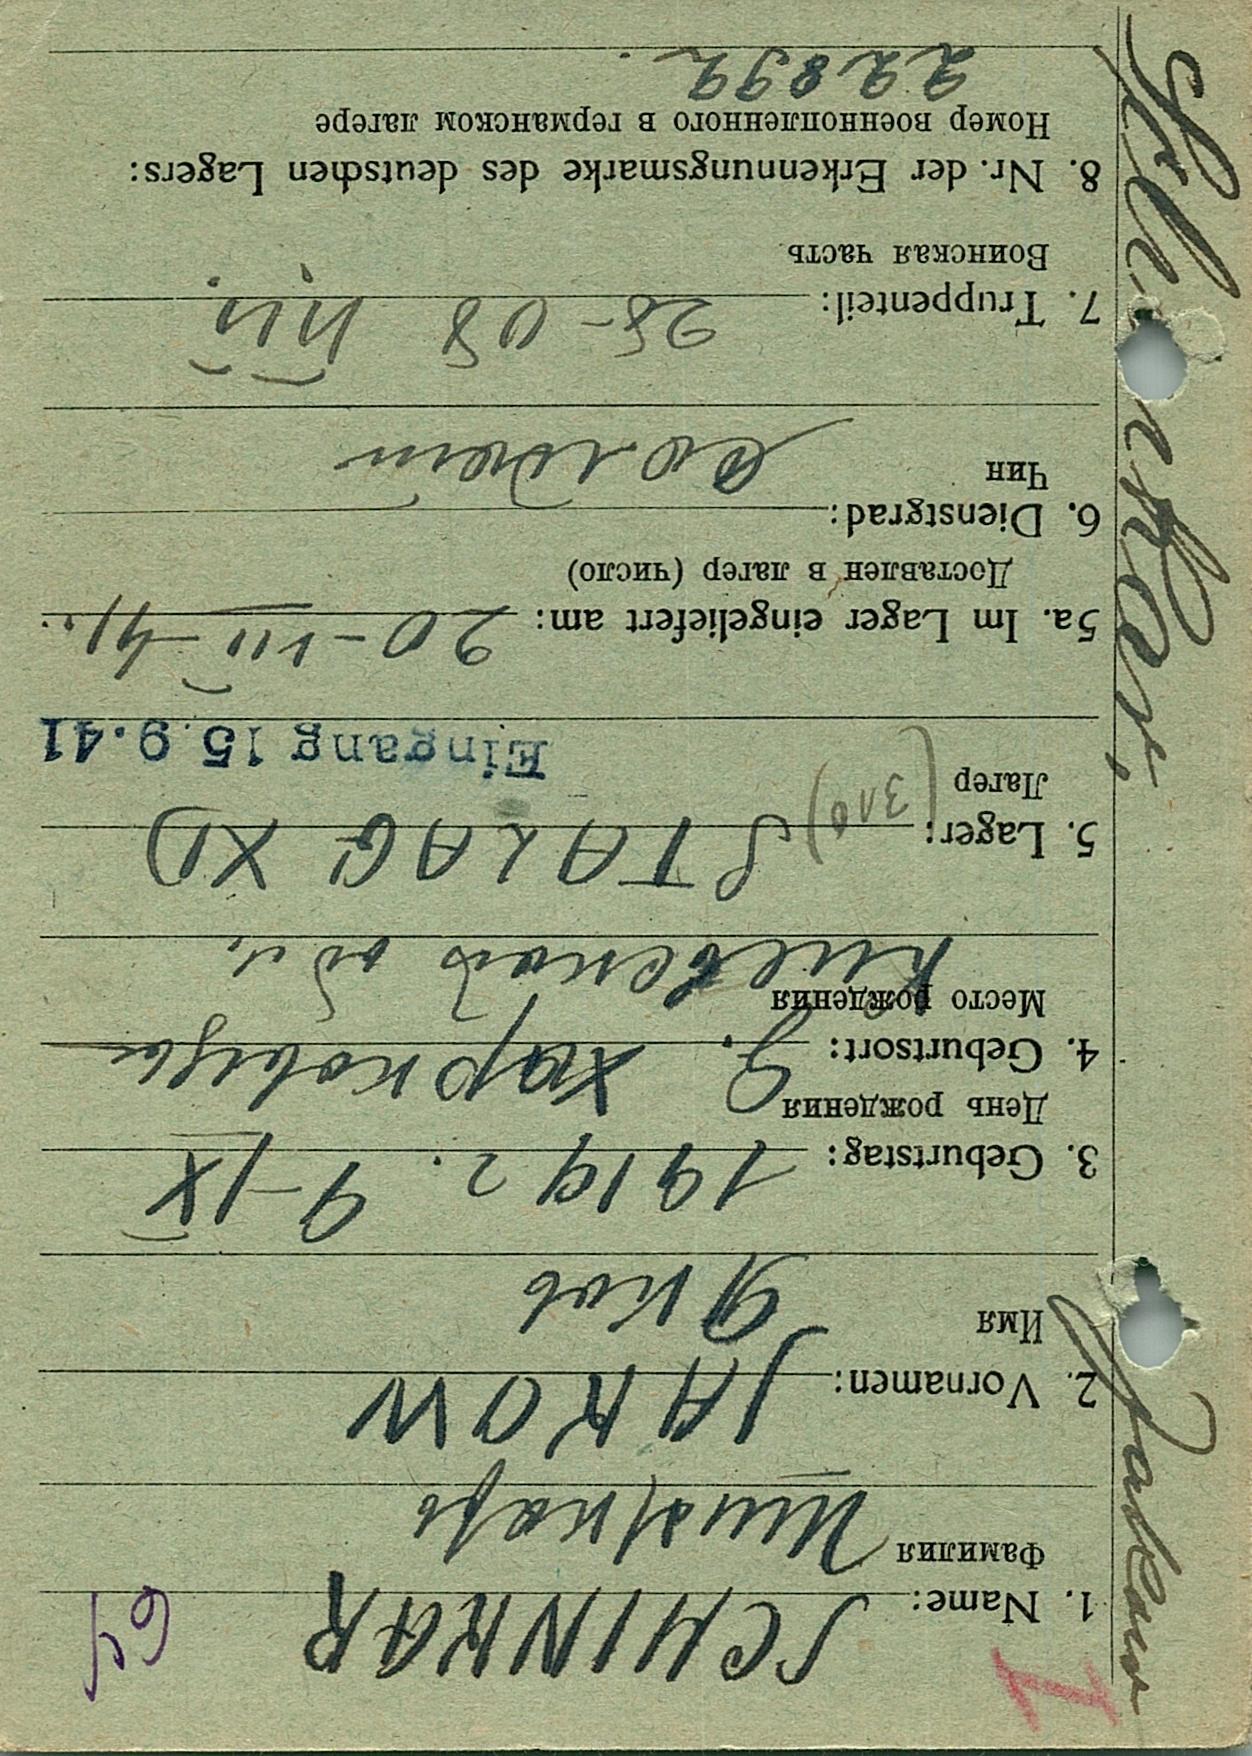 I
64
1. Name: SCHINKAR
Фамилия Шинкарь
2. Vornamen: JAKOW
Имя Яков
3. Geburtstag: 1919 г. 9-IX
День рождения
4. Geburtsort: д. Харковцы
Место рождения Киевской обл,
5. Lager: (310) STALAG XD
Лагер
Eingang 15.9.41
5a. Im Lager eingeliefert am: 20-VII-41.
Доставлен в лагер (число)
6. Dienstgrad:
Чин солдат
7. Truppenteil: 25-08
Воинская часть
8. Nr. der Erkennungsmarke des deutschen Lagers:
Номер военнопленного в германском лагере
22892.
Schinkar, Jakow